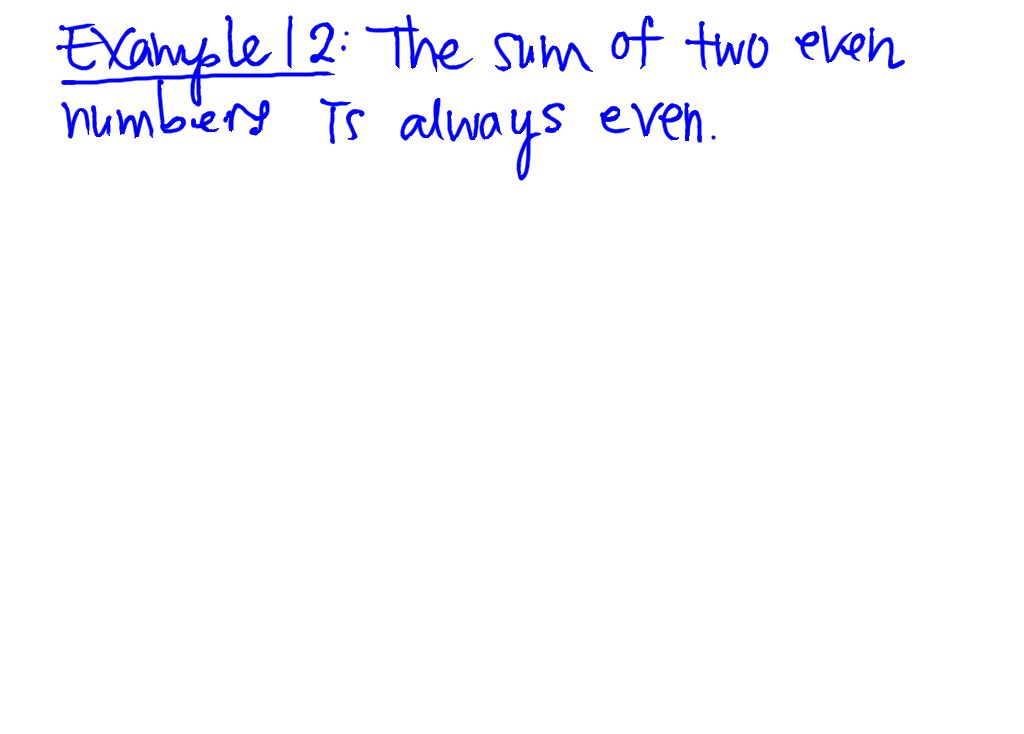 Example 12: The sum of two even
numbers is always even.